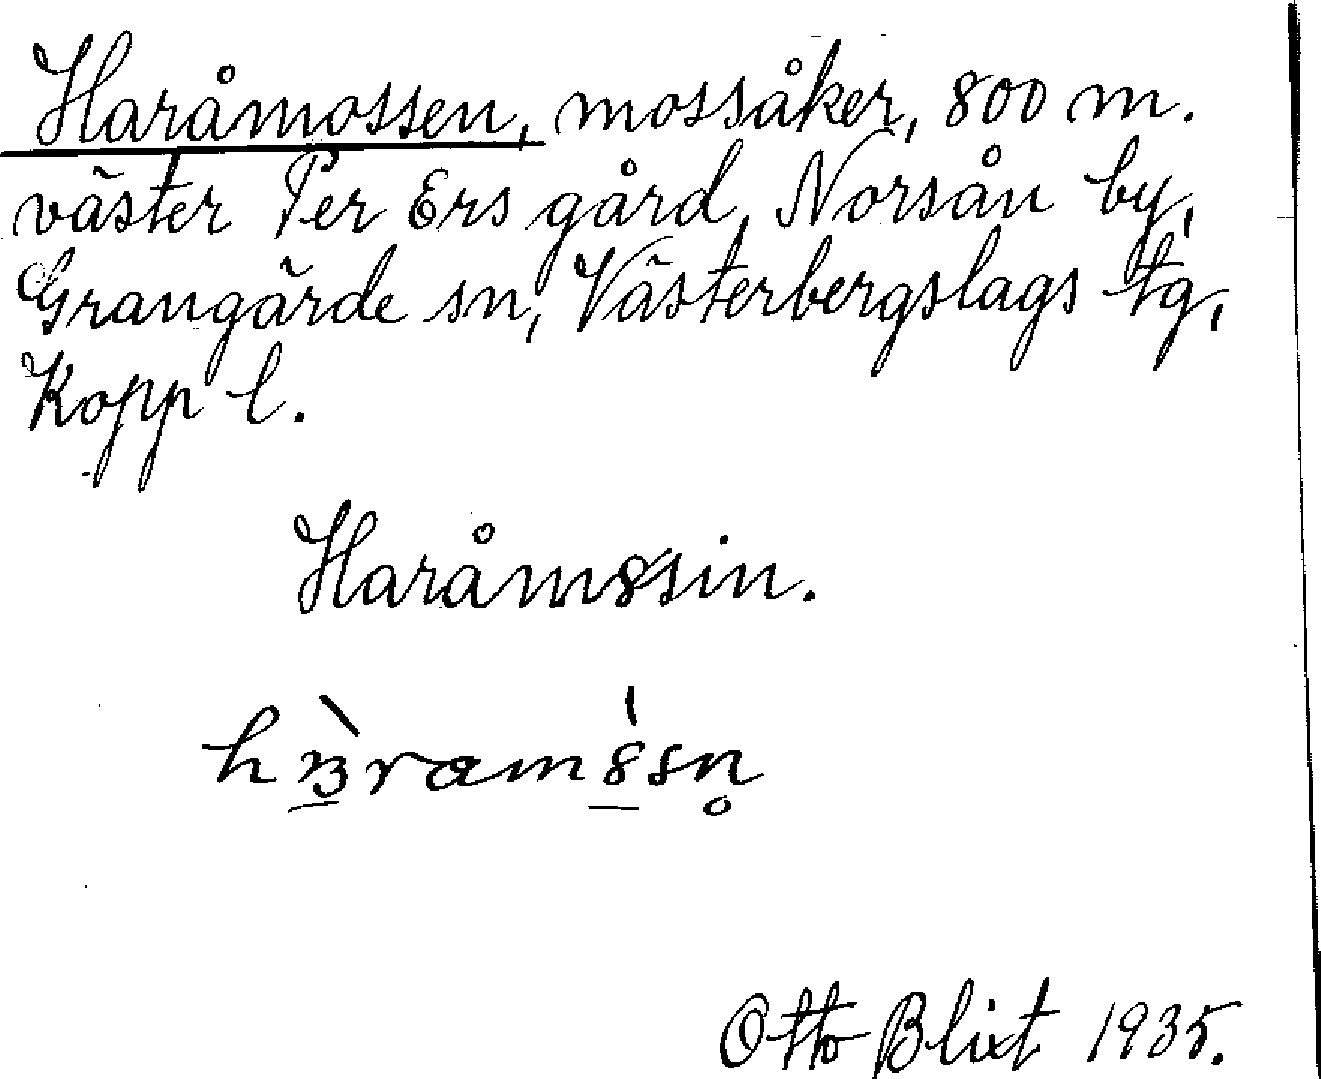 Haråmossen, mossåker, 800 m.
väster Per Ers gård, Norsån by,
Grangärde sn, Västerbergslags tg,
Kopp l.
Haråm8ssin.
Otto Blixt 1935.